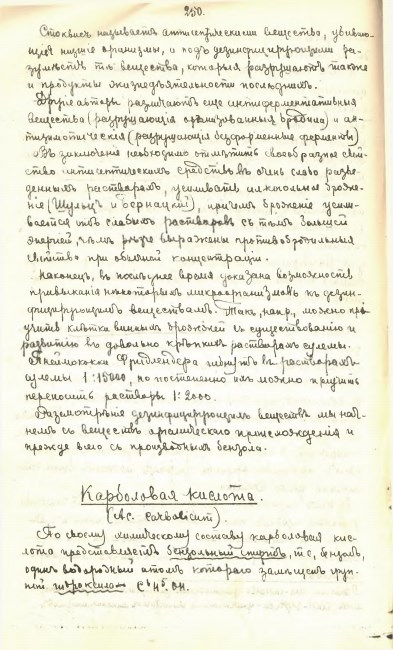 250.
Стоквис называетъ антисептическими вещества, убиваю-
щiя низшiе организмы, и подъ дезинфицирующими ра-
зумѣетъ тѣ вещества, которыя разрушаютъ также
и продукты жизнедѣятельности послѣднихъ.
Другiе авторы различаютъ еще антиферментативныя
вещества (разрушающiя организованныя бродила) и ан-
тизимотическiя (разрушающiя безформенные ферменты)
Въ заключенiе необходимо отмѣтить своеобразное свой-
ство антисептическихъ средствъ въ очень слабо разве-
денныхъ растворахъ, усиливать алкогольное броже-
нiе (Шульцъ и Бернацкiй), причемъ броженiе усили-
вается отъ слабыхъ растворовъ съ тѣмъ большей
энергiей, чѣмъ рѣзче выражены противобродильныя
свойства при обычной концентрацiи.
Наконецъ, въ послѣднее время доказана возможность
привыканiя нѣкоторыхъ микроорганизмовъ къ дезин-
фицирующимъ веществамъ. Такъ, напр., можно прi
учить клѣтки винныхъ дрожжей къ существованiю и
развитiю въ довольно крѣпкихъ растворахъ сулемы.
Пнеймококки Фридлендера гибнутъ въ растворахъ
сулемы 1:15000, но постепенно ихъ можно прiучить
переносить растворы 1:2000.
Разсмотрѣнiе дезинфицирующихъ веществъ мы нач-
немъ съ веществъ органическаго происхожденiя и
прежде всего съ производныхъ бензола.
Карболовая кислота.
(Ac. carbolicum).
По своему химическому составу карболовая кис-
лота представляетъ бензольный спиртъ, т.е, бензолъ,
одинъ водородный атомъ котораго замѣщенъ груп-
пой гидроксила C⁶H⁵.OH.